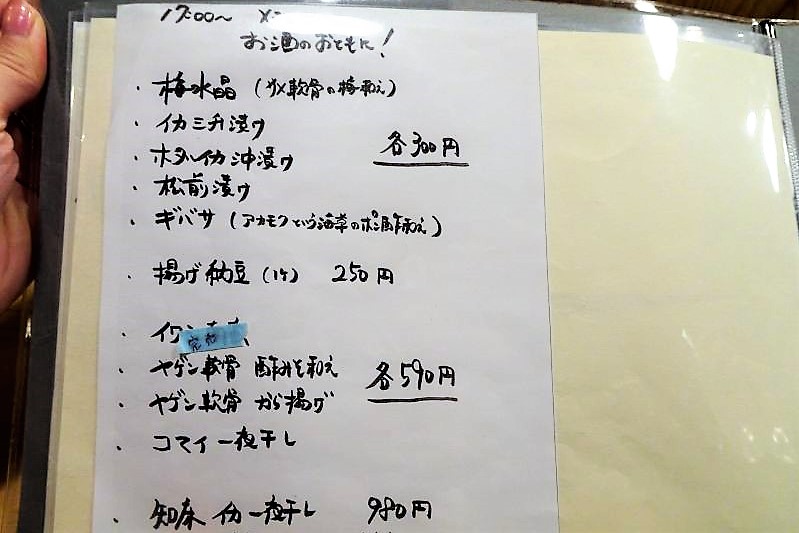 17:00〜 メ
お酒のおともに!
・梅水晶 (サメ軟骨の梅和え)
・イカミミ升漬け
・ホタルイカ沖漬け
各300円
・松前漬け
・ギバサ (アカモクという海草のポン酢和え)
・揚げ納豆 (1ケ) 250円
・イワシ
完売
・ヤゲン軟骨 酢みそ和え
各590円
・ヤゲン軟骨 から揚げ
・コマイ一夜干し
・知床 イカ一夜干し 980円